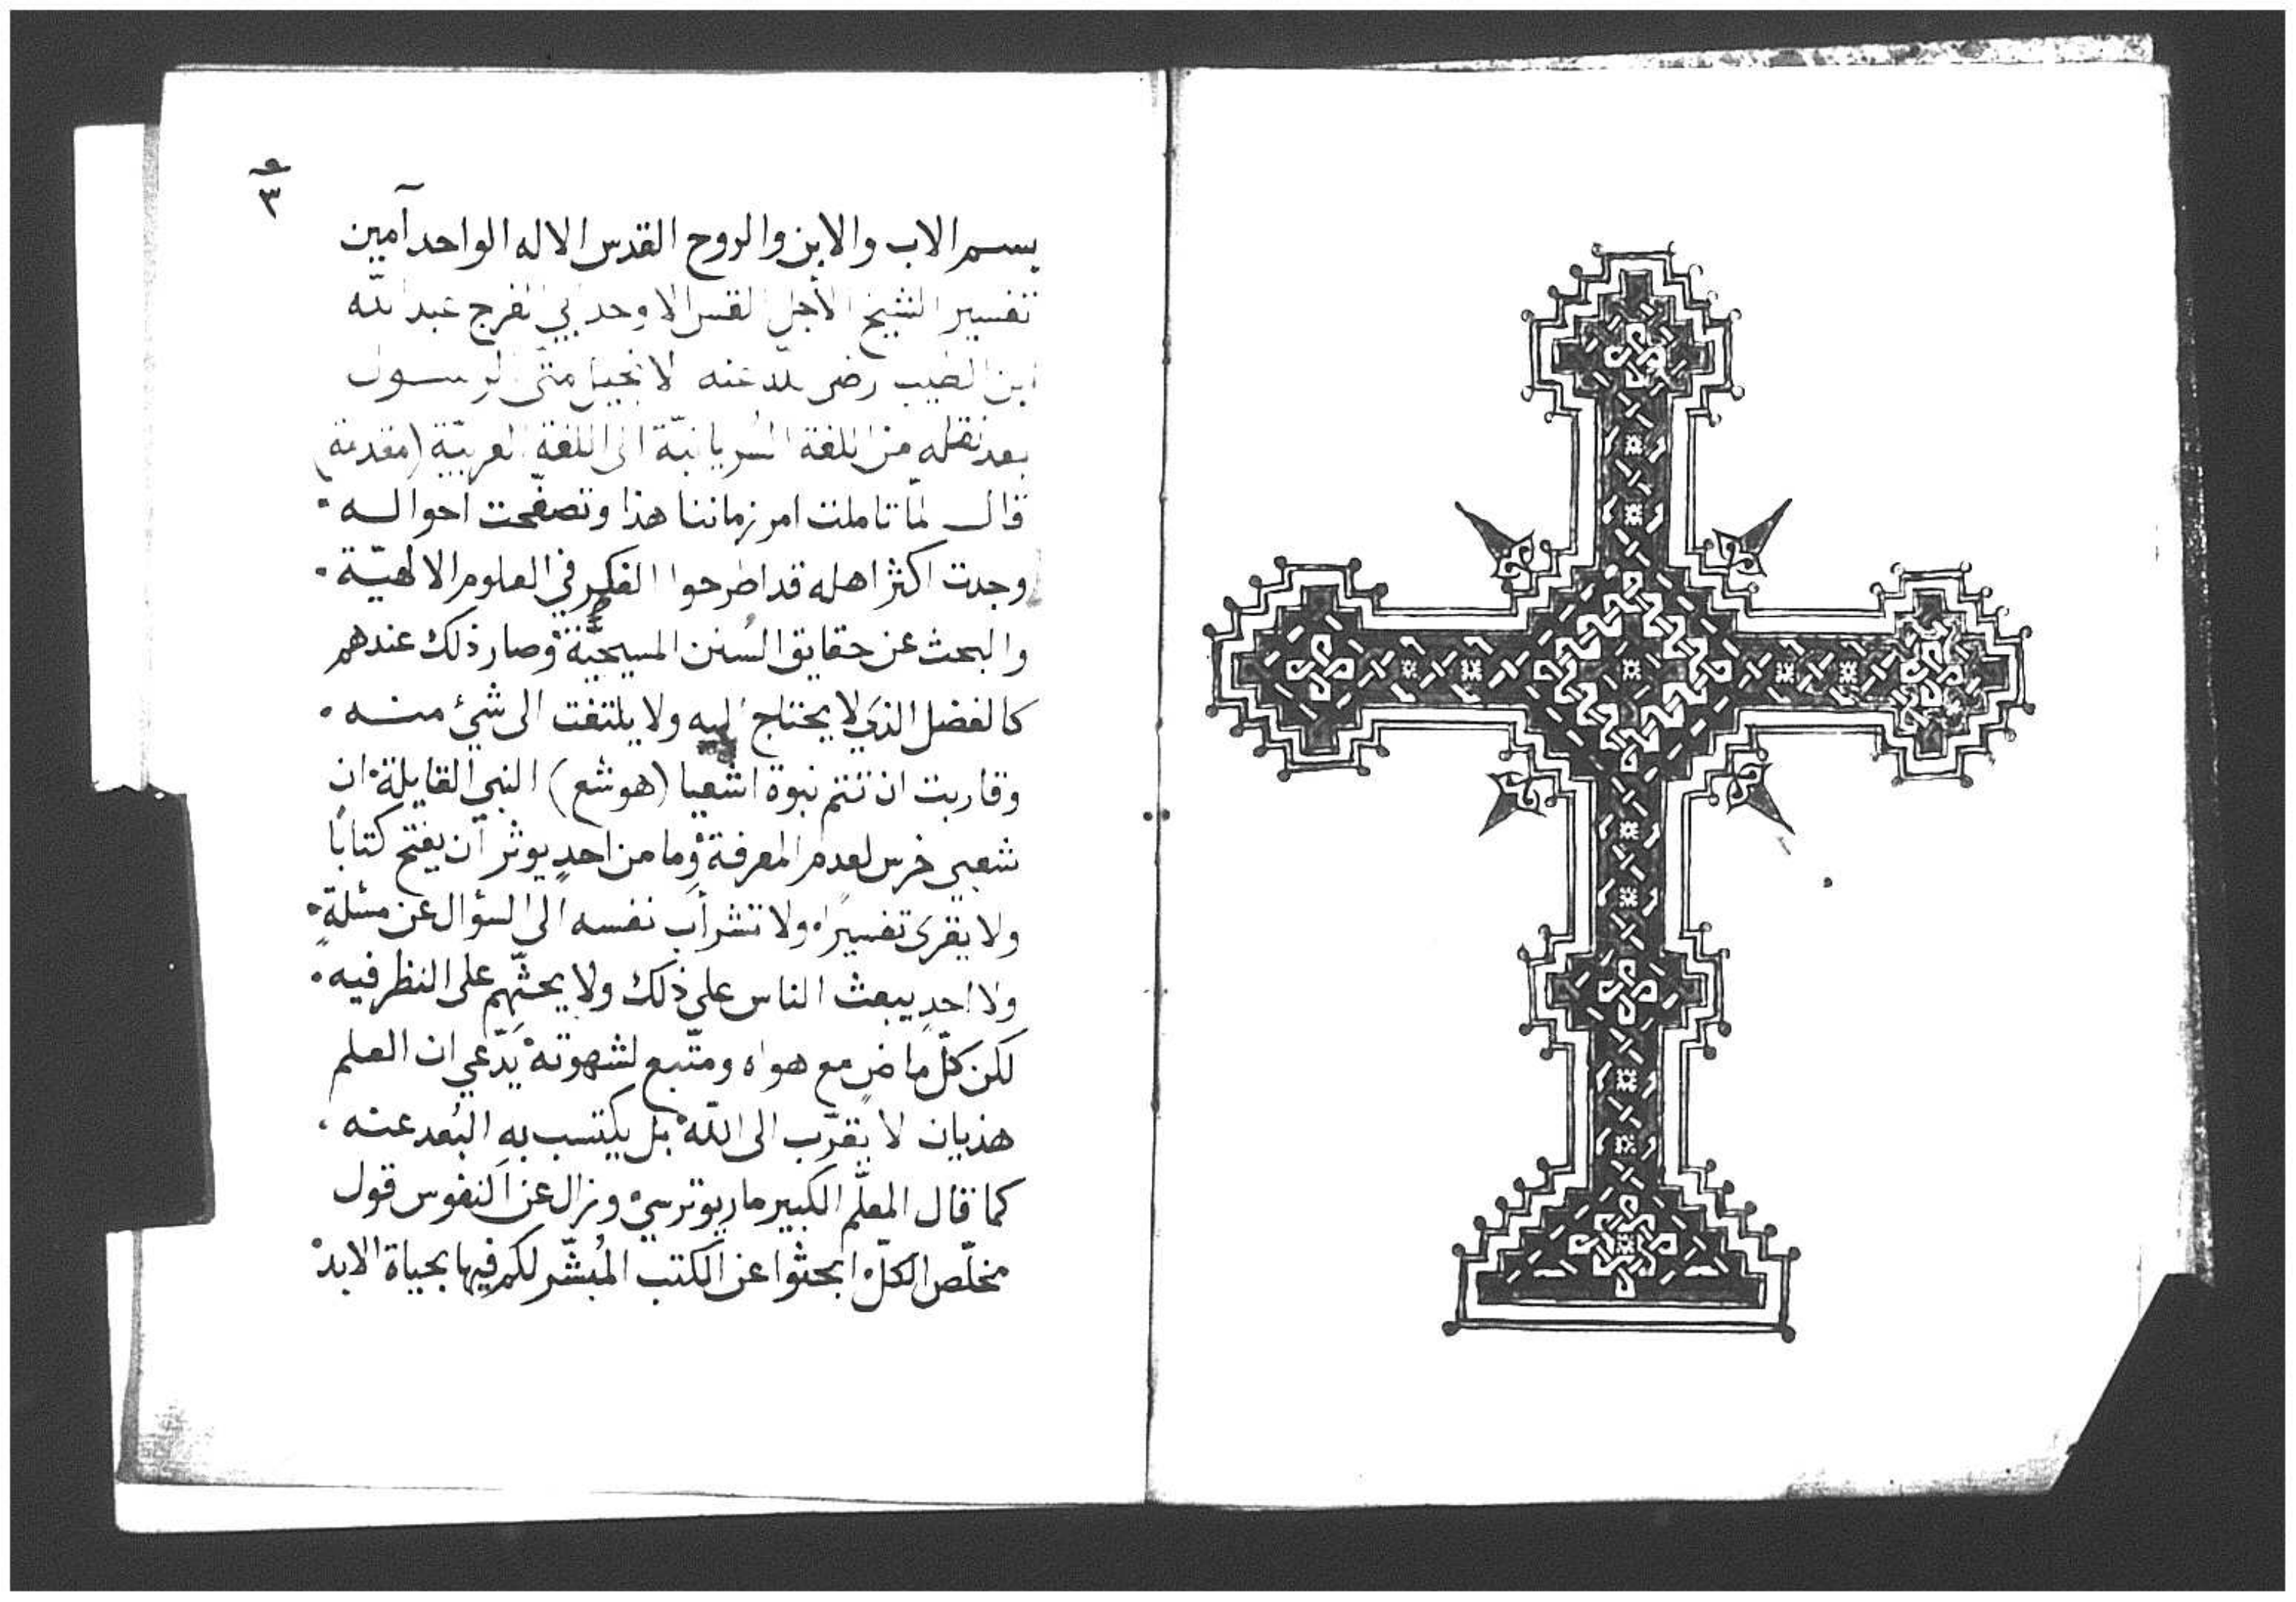 ٣
بسم الاب والابن والروح القدس الاله الواحد آمين
تفسير الشيخ الأجل القس الاوحد ابي الفرج عبد الله
ابن الطيب رضى الله عنه لانجيل متّى الرسول
بعد نقله من اللغة السُريانيّة الى اللغة العربيّة (مقدمة)
قال لمّا تاملت امر زماننا هذا وتصفّحت احواله ۰
وجدت اكثر اهله قد اطرحوا الفكر في العلوم الالهيّة ۰
والبحث عن حقايق السُنن المسيحيّة وصار ذلك عندهم
كالفضل الذي لا يحتاج اليه ولا يلتفت الى شئ منه ۰
وقاربت ان تتم نبوة اشعيا (هوشع) النبي القايلة ان
شعبي خرس لعدم المعرفة وما من احدٍ يوثر ان يفتح كتابًا
ولا يقرى تفسيرًا ولا تشرأب نفسه الى السؤال عن مسئلةٍ
ولا احدٍ يبعث الناس على ذلك ولا يحثّهم على النظر فيه ۰
لكن كلّ ماضٍ مع هواه ومتّبع لشهوته يدّعي ان العلم
هذيان لا يقرّب الى اللّه بل يكتسب به البُعد عنه ۰
كما قال المعلّم الكبير ماريوترسي وزال عن النفوس قول
مخلّص الكلّ ابحثوا عن الكتب المُبشّر لكم فيها بحياة الابد